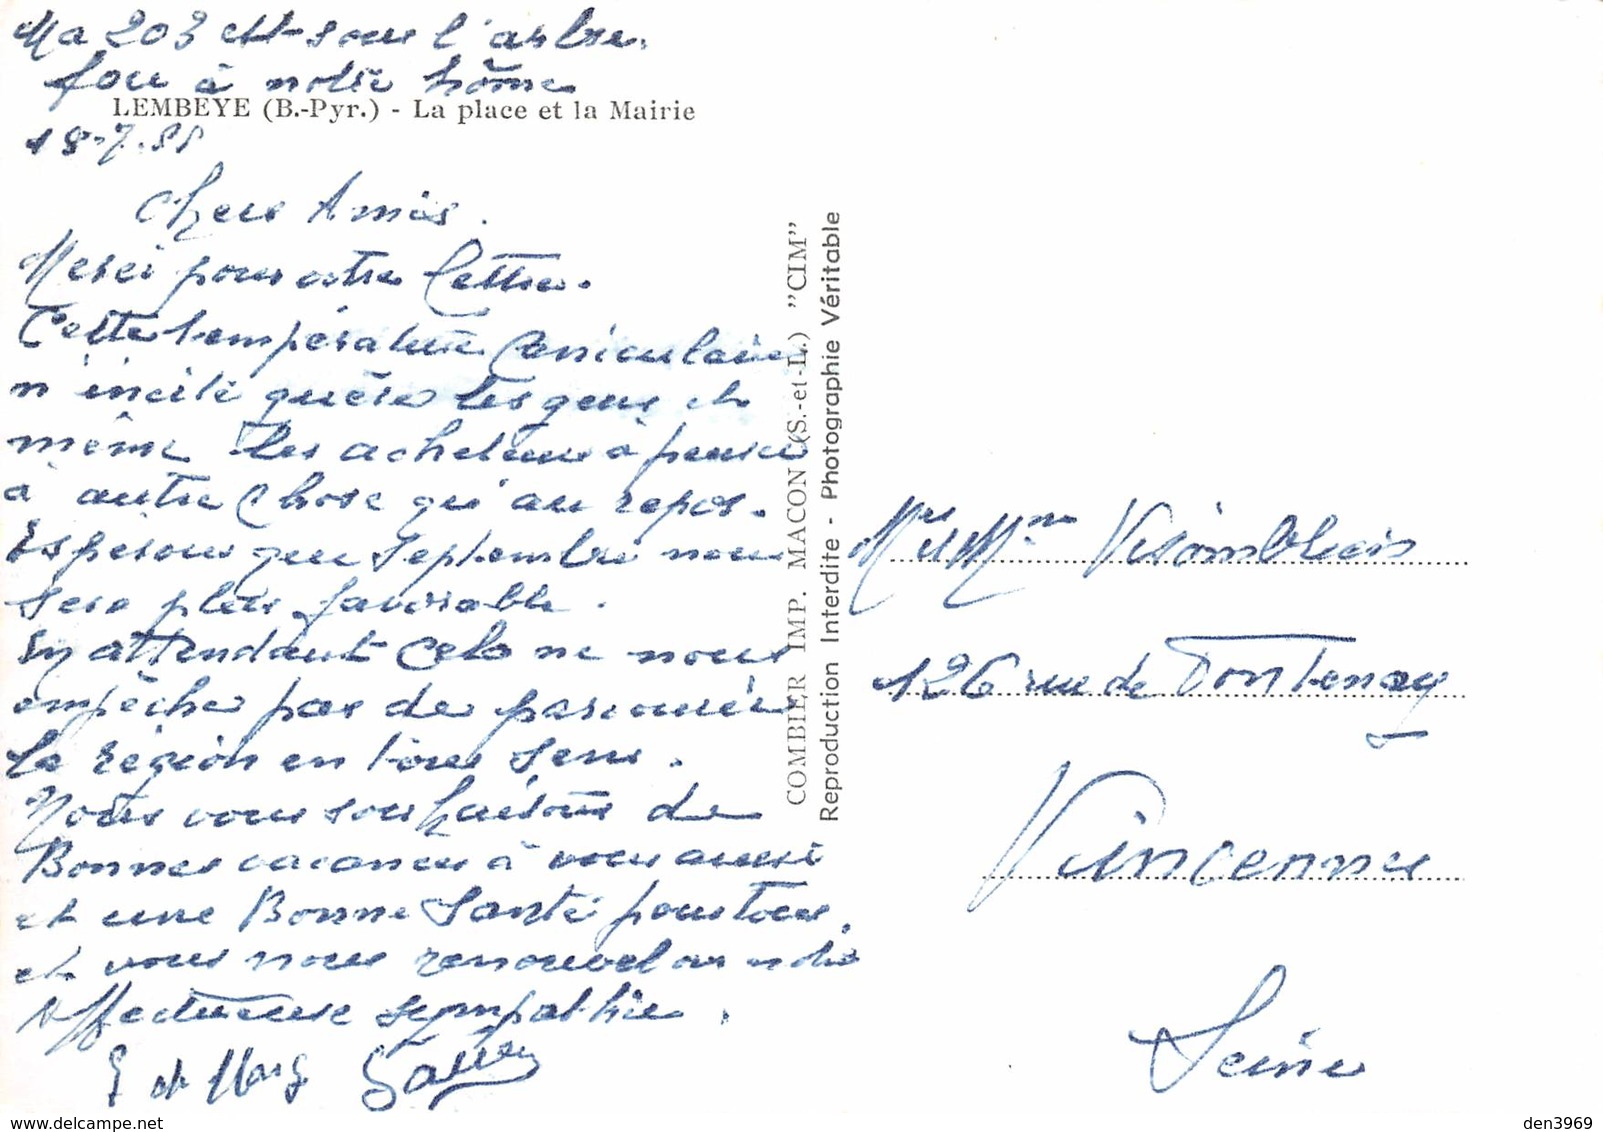 Ma 203 est sous l'arbre.
face à notre home
LEMBEYE (B.-Pyr.) - La place et la Mairie
18-7.55
Chers Amis.
Merci pour votre lettre.
Cette température caniculaire
n'incite guère les gens et
même les acheteurs à penser
à autre chose qu'au repos.
Espérons que septembre nous
sera plus favorable.
En attendant cela ne nous
empêche pas de parcourir
la région en tous sens.
Nous vous souhaitons de
Bonnes vacances à vous aussi
et une Bonne Santé pour tous,
et vous nous renouvelons notre
affectueuse sympathie.
et Marg
COMBIER IMP. MACON (S.-et-L.) "CIM"
Reproduction Interdite - Photographie Véritable
Mr et Mme
126 rue de Fontenay
Vincennes
Seine
den3969